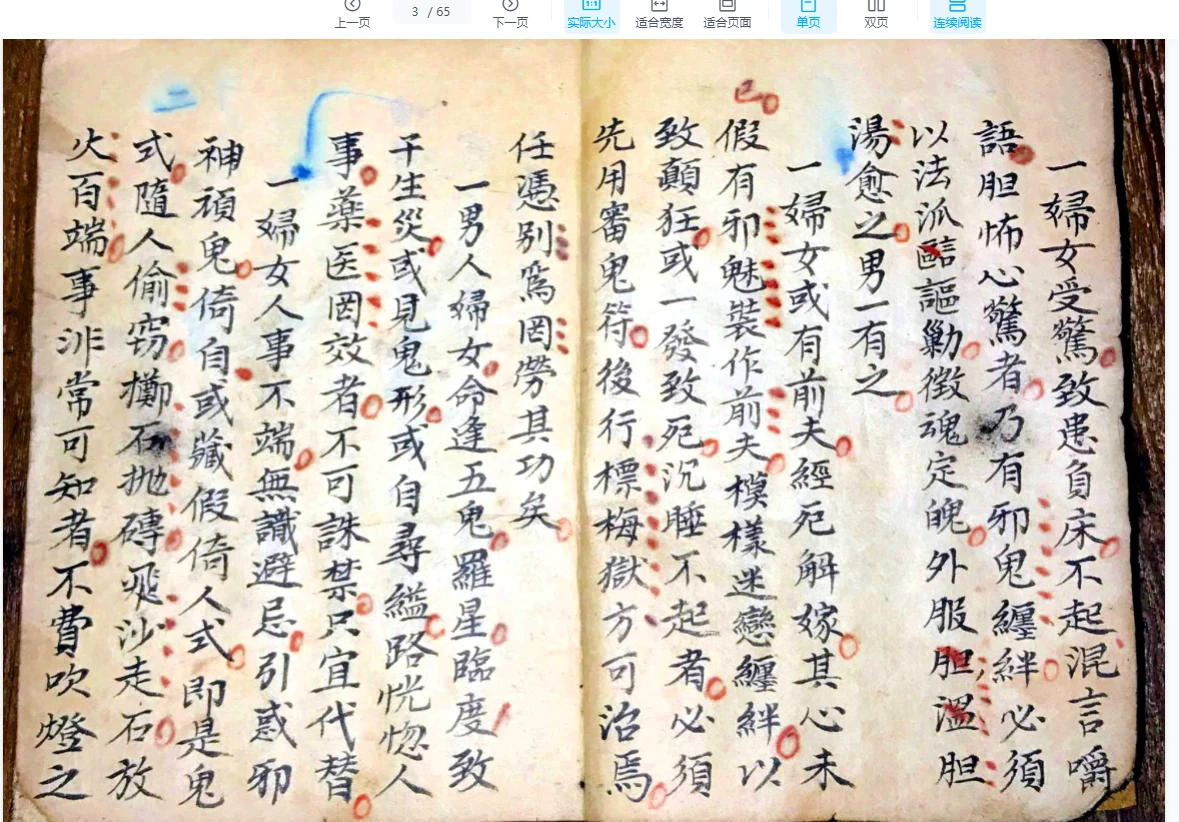 上一页
3 / 65
下一页
实际大小
适合宽度
适合页面
单页
双页
连续阅读
一婦女受驚致患負床不起混言嚼
語胆怖心驚者乃有邪鬼纏絆必須
以法派謳勦徴魂定魄外服胆溫胆
湯愈之男一有之
一婦女或有前夫經死解嫁其心未
假有邪魅裝作前夫模樣迷戀纏絆以
致顛狂或一發致死沉睡不起者必須
先用審鬼符後行標梅獄方可治焉
任憑別寫罔勞其功矣
一男人婦女命逢五鬼羅星臨度致
干生災或見鬼形或自尋縊路恍惚人
事藥医罔效者不可誅禁只宜代替
一婦女人事不端無識避忌引惑邪
神頑鬼倚自或藏假倚人式即是鬼
式隨人偷窃擲石抛磚飛沙走石放
火百端事非常可知者不費吹燈之
二